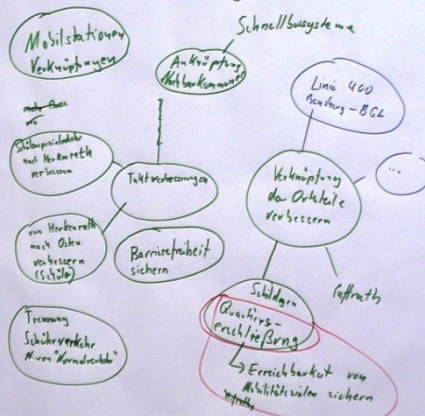 Schnellbussysteme
Mobilstationen
Verknüpfungen
Anknüpfung
Nachbarkommunen
Linie 400
Bensberg - BGL
mehr Busse
nach Herkenrath
verbessern
Taktverbesserungen
Verknüpfung
der Ortsteile
verbessern
...
von Herkenrath
nach Osten
verbessern
(Schüler)
Barrierefreiheit
sichern
Schildgen
Quartiers-
erschließung
Paffrath
Trennung
Schülerverkehr
von "Normalverkehr"
Erreichbarkeit von
Mobilitätszielen sichern